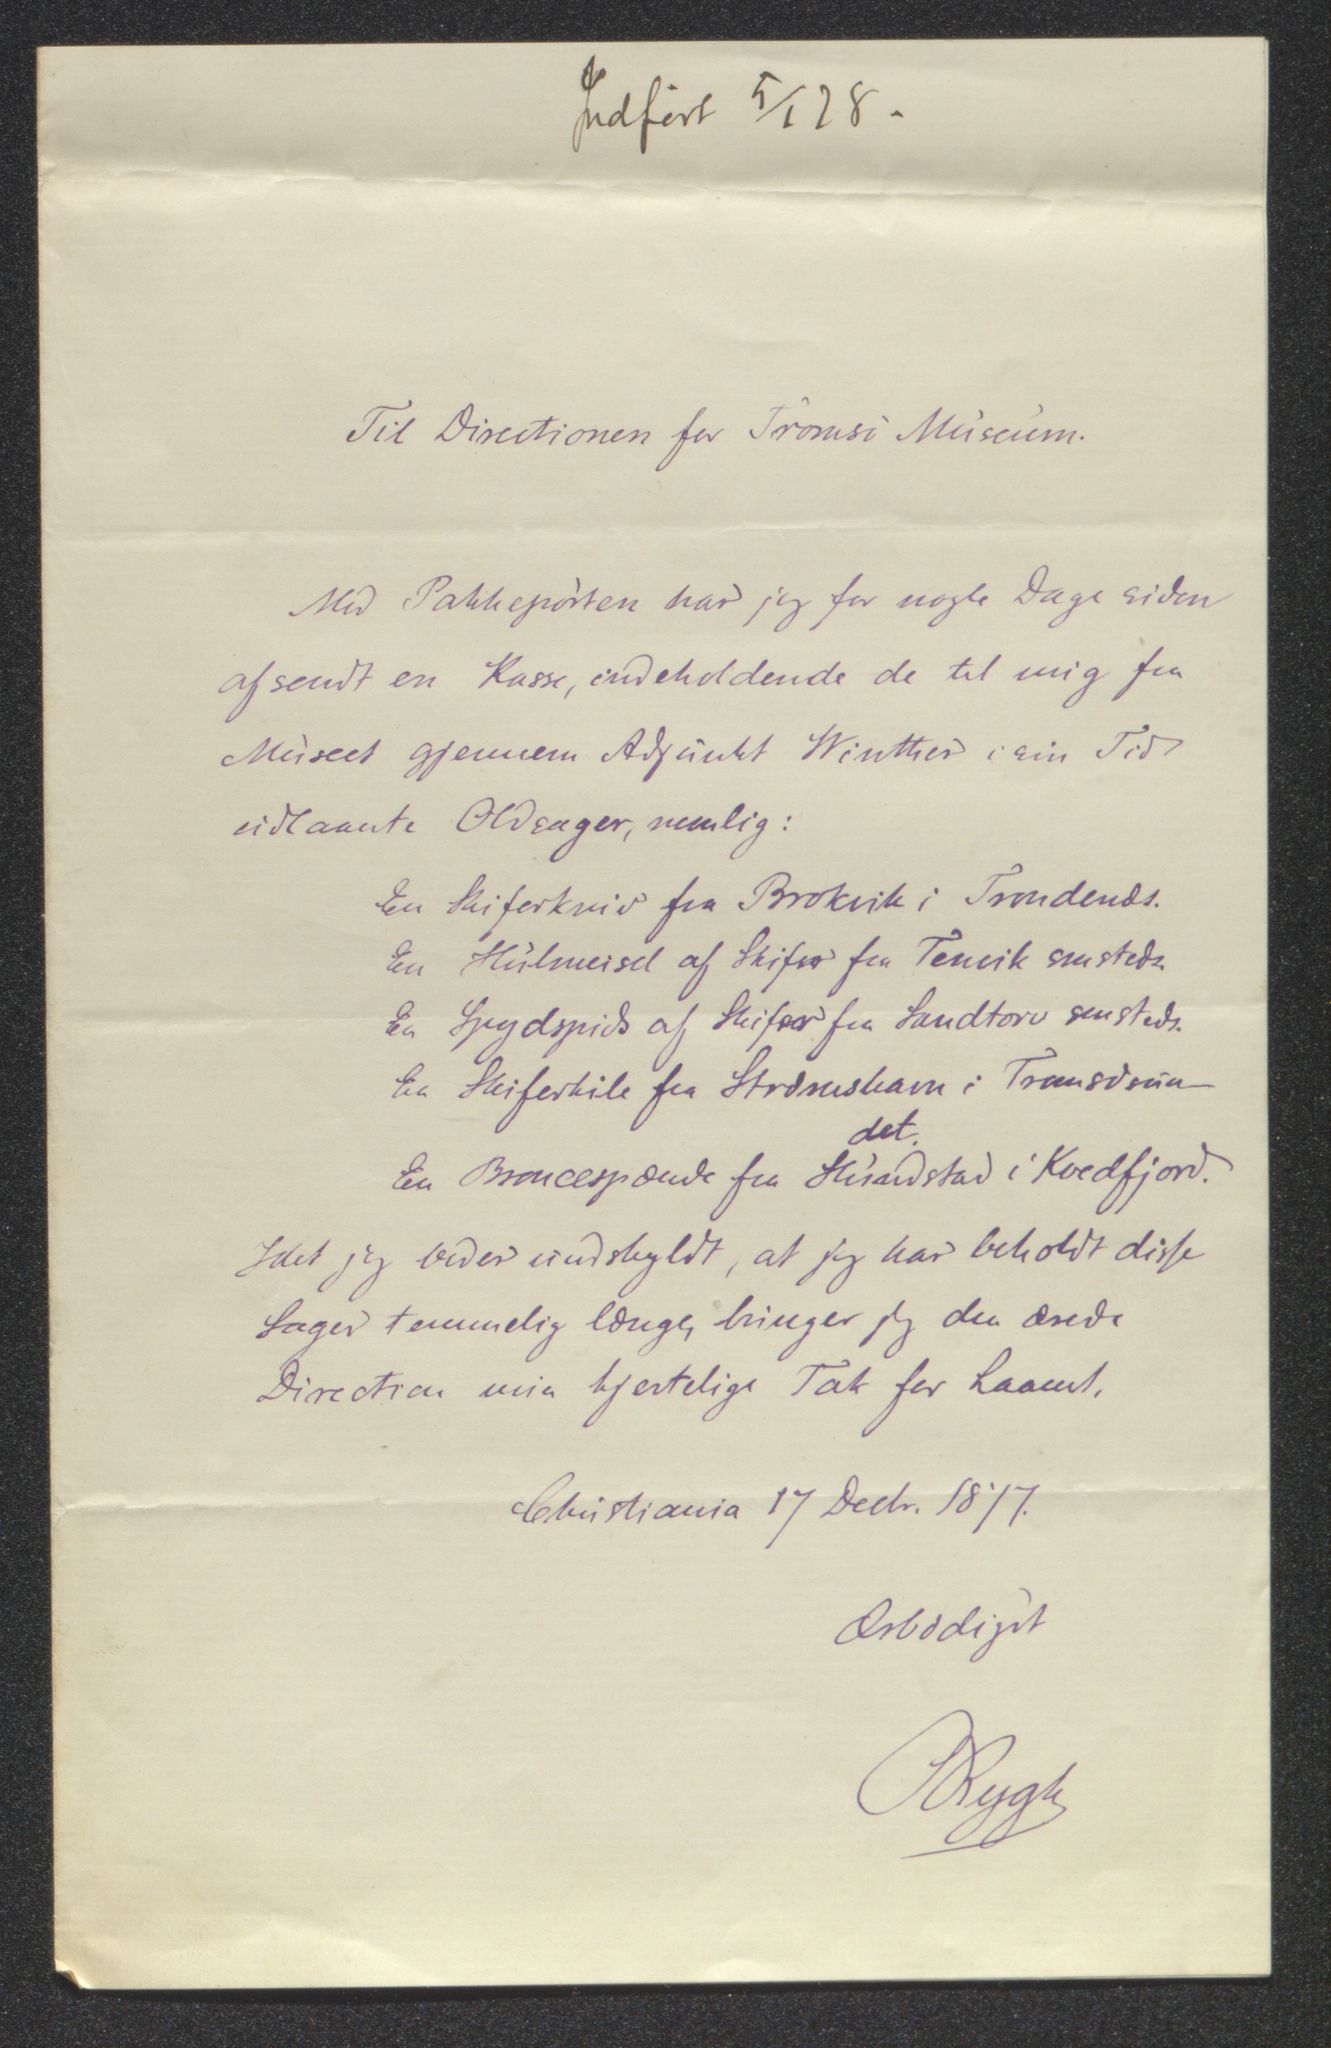 Indført 5/1 78.
Til Directionen for Tromsø Museum.
Med Pakkeposten har jeg for nogle Dage siden
afsendt en Kasse, indeholdende de til mig fra
Museet gjennem Adjunkt Winther i sin Tid
udlaante Oldsager, nemlig:
En Skiferkniv fra Brokvik i Trondenæs.
En Hulmeisel af Skifer fra Tenvik smsteds.
En Spydspids af Skifer fra Sandtorv smsteds.
En Skiferkile fra Strømshavn i Tromsøsun
det.
En Broncespænde fra Hundstad i Kvedfjord.
Idet jeg beder undskyldt, at jeg har beholdt disse
Sager temmelig længe, bringer jeg den ærede
Direction min hjertelige Tak for Laanet.
Christiania 17 Decbr. 1877.
Ærbødigst
O Rygh